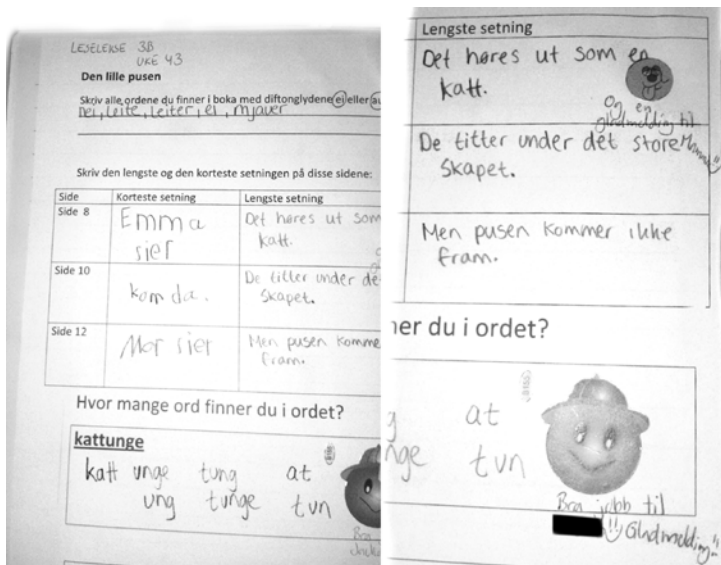 LESELEKSE 3B
UKE 43
Den lille pusen
Skriv alle ordene du finner i boka med diftonglydene ei eller au
nei, leite, leiter, ei, mjauer
Skriv den lengste og den korteste setningen på disse sidene:
Side Korteste setning Lengste setning
Side 8 Emma sier Det høres ut som
katt.
Side 10 kom da. De titter under de
skapet.
Side 12 Mor sier Men pusen komme
fram.
Hvor mange ord finner du i ordet?
kattunge
katt unge tung at
ung tunge tun
Bra
Lengste setning
Det høres ut som en
katt.
Og en
gladmelding til
Mamma
De titter under det store
skapet.
Men pusen kommer ikke
fram.
ner du i ordet?
g at
nge tun
Bra jobb til
!! Gladmelding!!